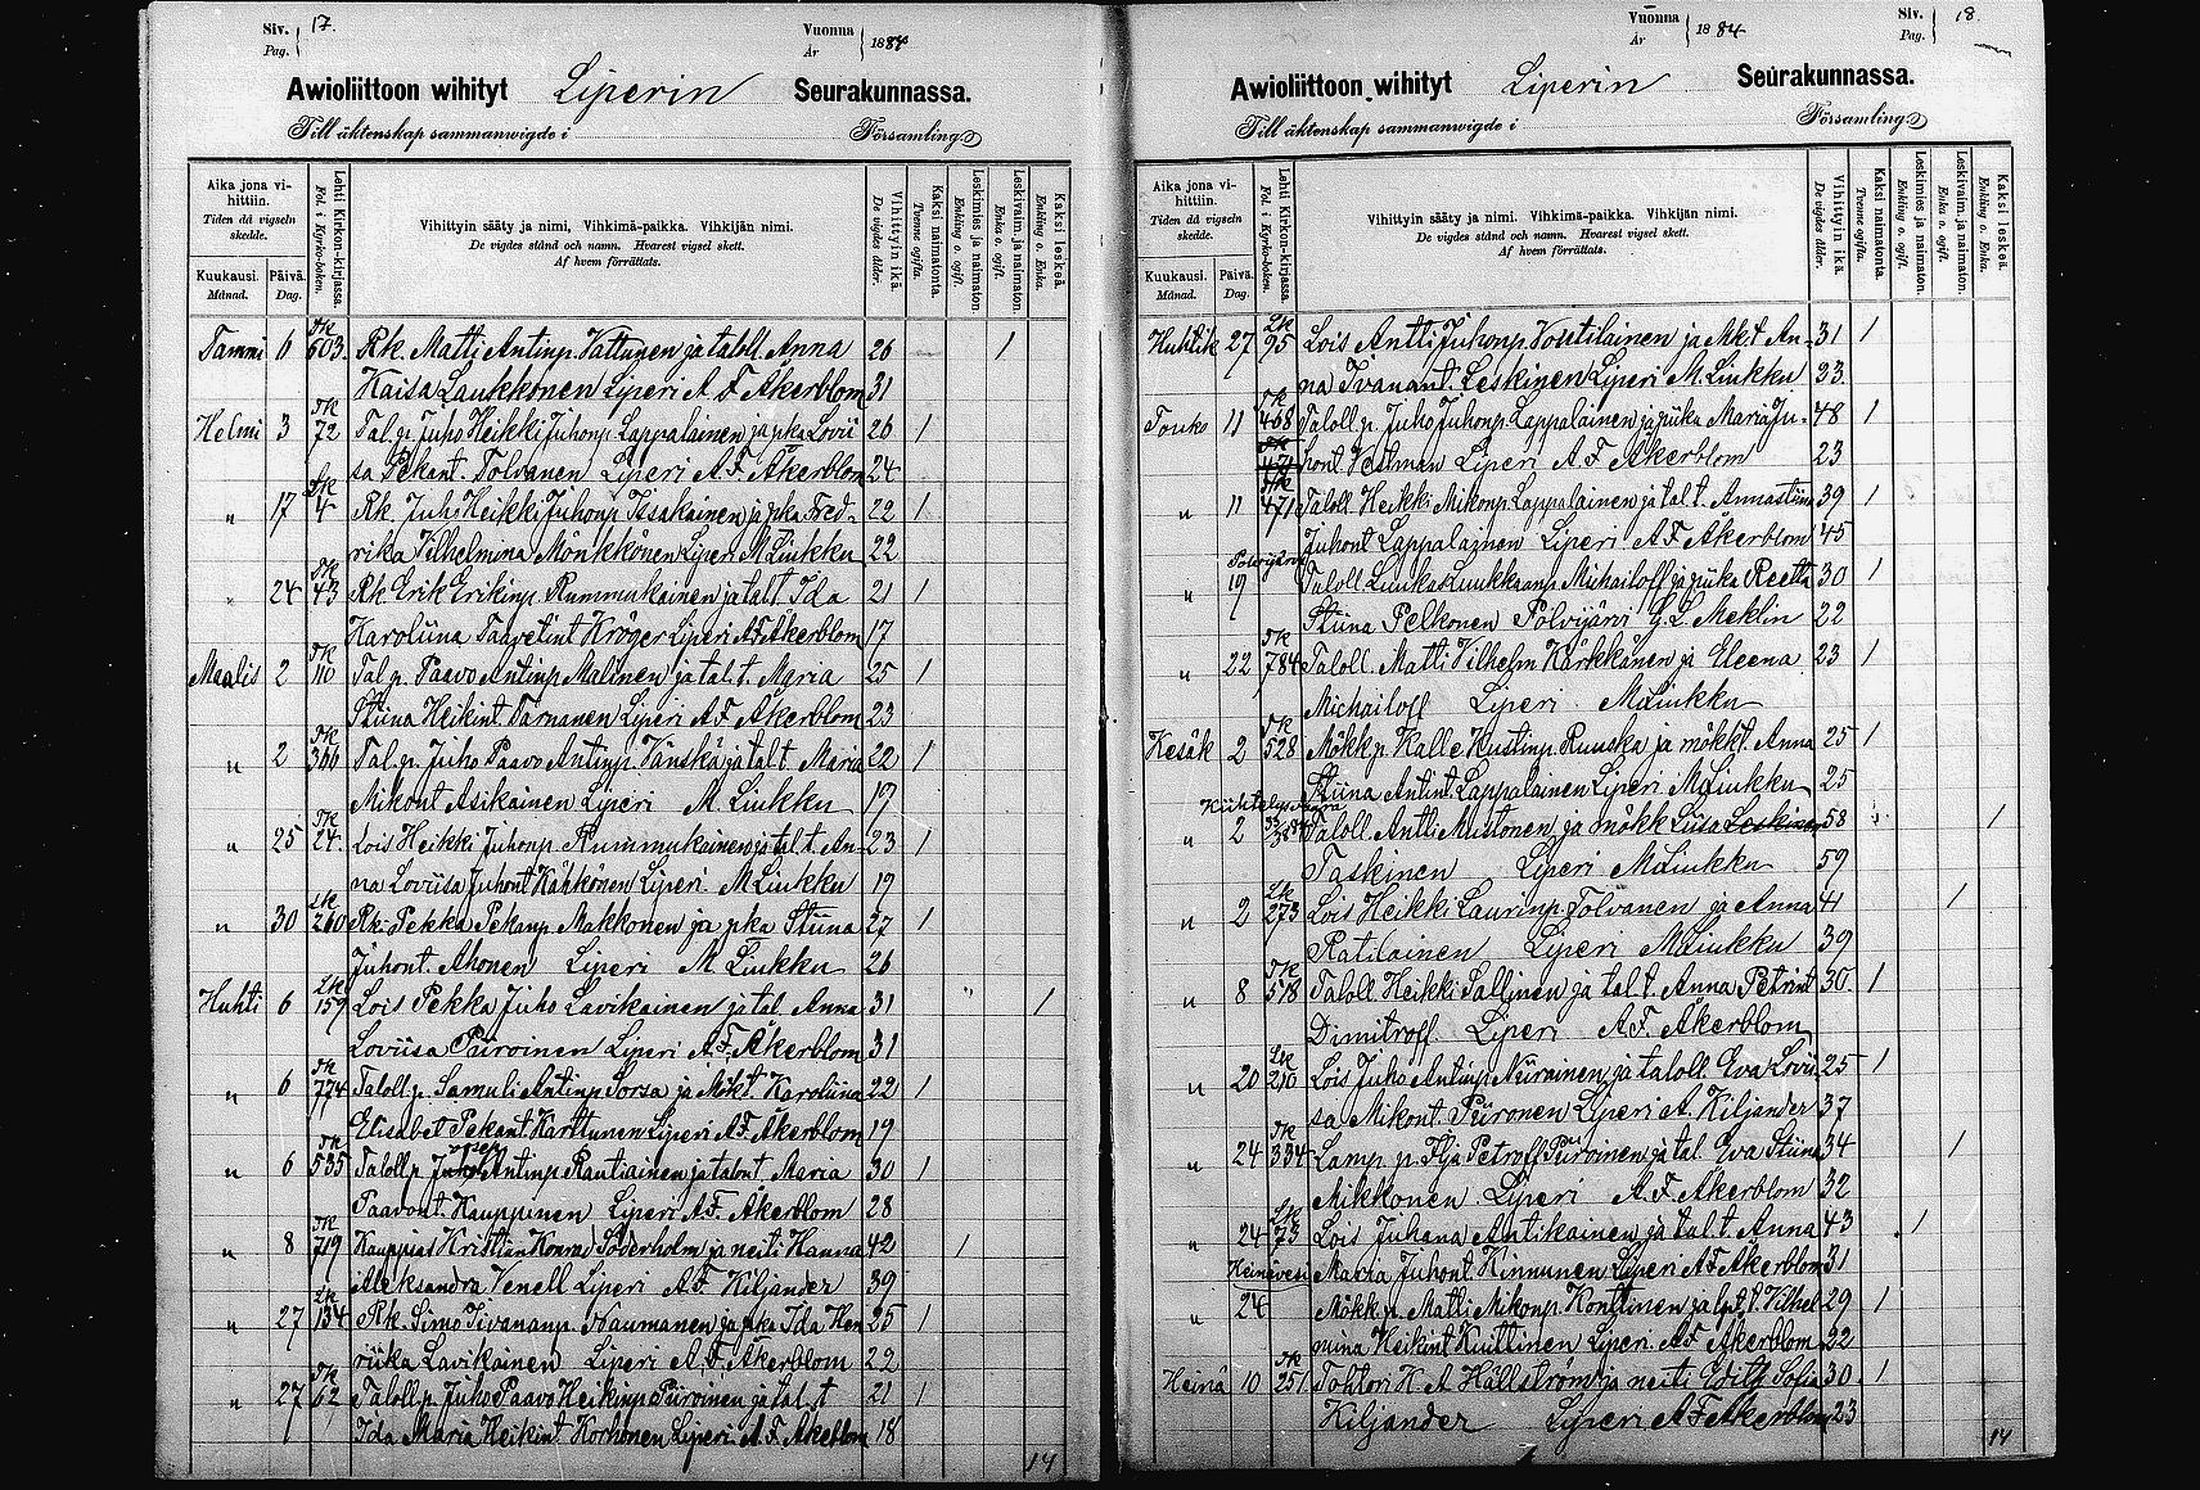 Siv. 17.
Pag.
Vuonna 1884
År
Awioliittoon wihityt Liperin Seurakunnassa.
Till äktenskap sammanwigde i Församling
Aika jona vihittiin.
Tiden då vigseln skedde.
Kuukausi. Månad.
Päivä. Dag.
Lehti Kirkon-kirjassa.
Fol. i Kyrko-boken.
Vihittyin sääty ja nimi, Vihkimä-paikka. Vihkijän nimi.
De vigdes stånd och namn. Hvarest vigsel skett.
Af hvem förrättats.
Vihittyin ikä.
De vigdes ålder.
Kaksi naimatonta.
Tvenne ogifta.
Leskimies ja naimaton.
Enkling o. ogift.
Leskivaim. ja naimaton.
Enka o. ogift.
Kaksi leskeä.
Enkling o. Enka.
Tammi 6 Tk 603. Rk. Matti Antinp. Vattunen ja taloll. Anna 26 1
Kaisa Laukkonen Liperi A F Åkerblom 31
Helmi 3 Tk 72 Tal. p. Juho Heikki Juhonp. Lappalainen ja pka Lovii 26 1
sa Pekant. Tolvanen Liperi A. F. Åkerblom 24
" 17 Lk 4 Rk. Juho Heikki Juhonp Iisakainen ja pka Fred- 22 1
rika Vilhelmina Mönkkönen Liperi M Liukku 22
" 24 Tk 43 Rk. Erik Erikinp. Rummukainen ja tal.t. Ida 21 1
Karoliina Taavetint Kröger Liperi A F Åkerblom 17
Maalis 2 Tk 110 Tal p. Paavo Antinp Malinen ja tal. t. Maria 25 1
Stiina Heikint. Tarnanen Liperi A F Åkerblom 23
" 2 Tk 366 Tal. p. Juho Paavo Antinp. Vänskä ja tal t. Maria 22 1
Mikont Asikainen Liperi M. Liukku 19
" 25 Tk 24. Lois Heikki Juhonp Rummukainen ja tal. t. An- 23 1
na Loviisa Juhont Kähkönen Liperi. M Liukku 19
" 30 Lk 260 Rk. Pekka Pekanp Makkonen ja pka Stiina 27 1
Juhont. Ahonen Liperi M Liukku 26
Huhti 6 Lk 159 Lois Pekka Juho Lavikainen ja tal. Anna 31 1
Loviisa Piiroinen Liperi A. F. Åkerblom 31
" 6 Tk 774 Taloll. p. Samuli Antinp Sorsa ja Mökt. Karoliina 22 1
Elisabet Pekant. Karttunen Liperi A F Åkerblom 19
" 6 Tk 535 Taloll p Antinp Rautiainen ja talont. Maria 30 1
Paavont. Kauppinen Liperi A. F. Åkerblom 28
" 8 Tk 719 Kauppias Kristian Konrad Söderholm ja neiti Hanna 42 1
Aleksandra Venell Liperi A. F. Kiljander 39
" 27 Lk 134 Rk. Simo Iivananp. Naumanen ja pka Ida Hen 25 1
riika Lavikainen Liperi A. F. Åkerblom 22
" 27 Tk 62 Taloll. p. Juho Paavo Heikinp Piiroinen ja tal. t 21 1
Ida Maria Heikint Korhonen Liperi. A. F. Åkeblom 18
14
Vuonna 1884
År
Siv. 18.
Pag.
Awioliittoon wihityt Liperin Seurakunnassa.
Till äktenskap sammanwigde i Församling
Aika jona vihittiin.
Tiden då vigseln skedde.
Kuukausi. Månad.
Päivä. Dag.
Lehti Kirkon-kirjassa.
Fol. i Kyrko-boken.
Vihittyin sääty ja nimi. Vihkimä-paikka. Vihkijän nimi.
De vigdes stånd och namn. Hvarest vigsel skett.
Af hvem förrättats.
Vihittyin ikä.
De vigdes ålder.
Kaksi naimatonta.
Tvenne ogifta.
Leskimies ja naimaton.
Enkling o. ogift.
Leskivaim. ja naimaton.
Enka o. ogift.
Kaksi leskeä.
Enkling o. Enka.
Huhtik 27 Lk 95 Lois Antti Juhonp. Voutilainen ja Mkt An- 31 1
na Ivanant. Leskinen Liperi M. Liukku 33.
Touko 11 Tk 468 Taloll p. Juho Juhonp. Lappalainen ja piika Maria Ju- 48 1
471 hont Vestman Liperi A. F Åkerblom 23
" 11 Tk 471 Taloll Heikki Mikonp Lappalainen ja tal t. Annastiina 39 1
Juhont Lappalainen Liperi A F Åkerblom 45
Polvijärvi
" 19 Taloll Luuka Luukkaanp. Michailoff ja piika Reetta 30 1
Stiina Pelkonen Polvijärvi G. L. Meklin 22
" 22 Tk 784 Taloll. Matti Vilhelm Kärkkänen ja Eleena 23 1
Michailoff Liperi M Liukku
Kesäk 2 Tk 528 Mökk p. Kalle Kustinp. Ruuska ja mökkt. Anna 25 1
Stiina Antint. Lappalainen Liperi. M Liukku 25
Kiihtelysvaara
" 2 Taloll. Antti Mustonen ja mökk Liisa Leskinen 58 1
Taskinen Liperi M Liukku 59
" 2 Lk 273 Lois Heikki Laurinp. Tolvanen ja Anna 41 1
Ratilainen Liperi M Liukku 39
" 8 Tk 518 Taloll. Heikki Sallinen ja tal. t. Anna Petrint 30. 1
Dimitroff. Liperi A. F. Åkerblom
" 20 Lk 210 Lois Juho Antinp Niirainen ja taloll. Eva Lovii 25 1
sa Mikont. Piironen Liperi A. Kiljander 37
" 24 Tk 334 Lamp. p. Ilja Petroff Piiroinen ja tal Eva Stiina 34 1
Mikkonen. Liperi A. F. Åkerblom 32
" 24 Lk 73 Lois Juhana Antikainen ja tal. t. Anna 43 1
Maria Juhont. Kinnunen Liperi A F Åkerblom 31
Heinävesi
" 24 Mökk. p. Matti Mikonp. Konttinen ja lpt. t. Vilhel 29 1
mina Heikint Kuittinen Liperi. A F Åkerblom 22
Heinä 10 Tk 251 Tohtori K. A Hällström ja neiti Edith Sofia 30 1
Kiljander Liperi. A F Åkerblom 23
14